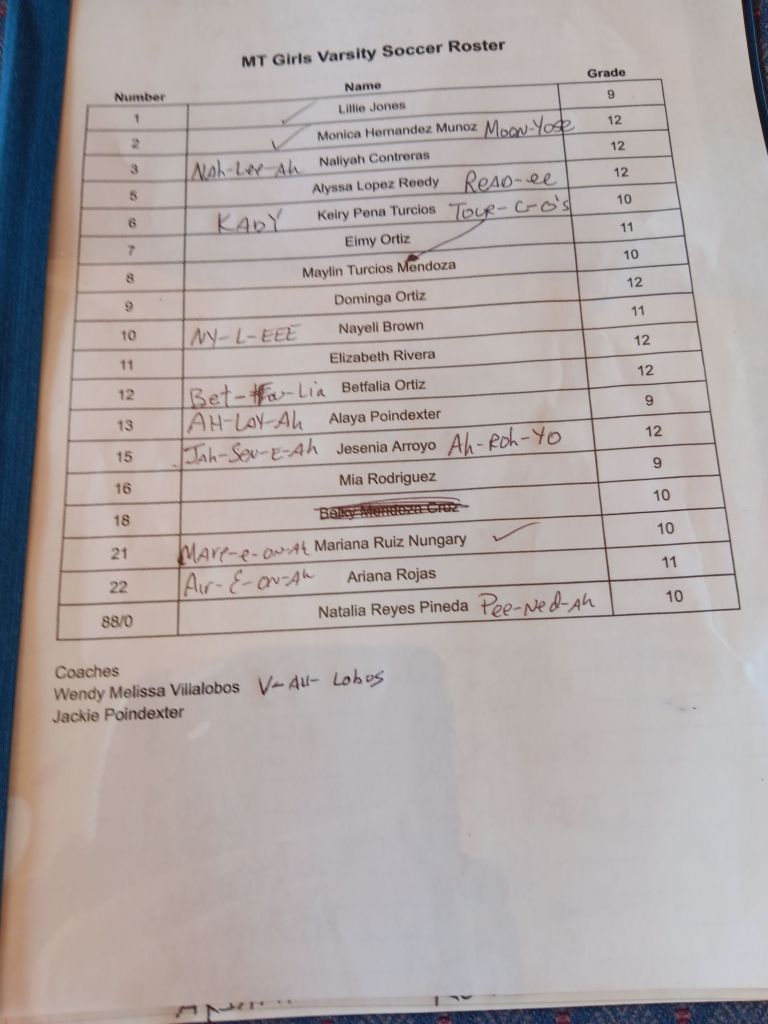 MT Girls Varsity Soccer Roster
Number Name Grade
1 Lillie Jones 9
2 Monica Hernandez Munoz Moon-Yose 12
3 Nah-Lee-Ah Naliyah Contreras 12
5 Alyssa Lopez Reedy Read-ee 12
6 KADY Keiry Pena Turcios Tour-C-O's 10
7 Eimy Ortiz 11
8 Maylin Turcios Mendoza 10
9 Dominga Ortiz 12
10 NY-L-EEE Nayeli Brown 11
11 Elizabeth Rivera 12
12 Bet-Fa-Lia Betfalia Ortiz 12
13 AH-LAY-Ah Alaya Poindexter 9
15 Jah-Sen-E-Ah Jesenia Arroyo Ah-Roh-Yo 12
16 Mia Rodriguez 9
18 Belky Mendoza Cruz 10
21 Mare-e-on-Ah Mariana Ruiz Nungary 10
22 Air-E-on-Ah Ariana Rojas 11
88/0 Natalia Reyes Pineda Pee-Ned-Ah 10
Coaches
Wendy Melissa Villalobos V-All-Lobos
Jackie Poindexter